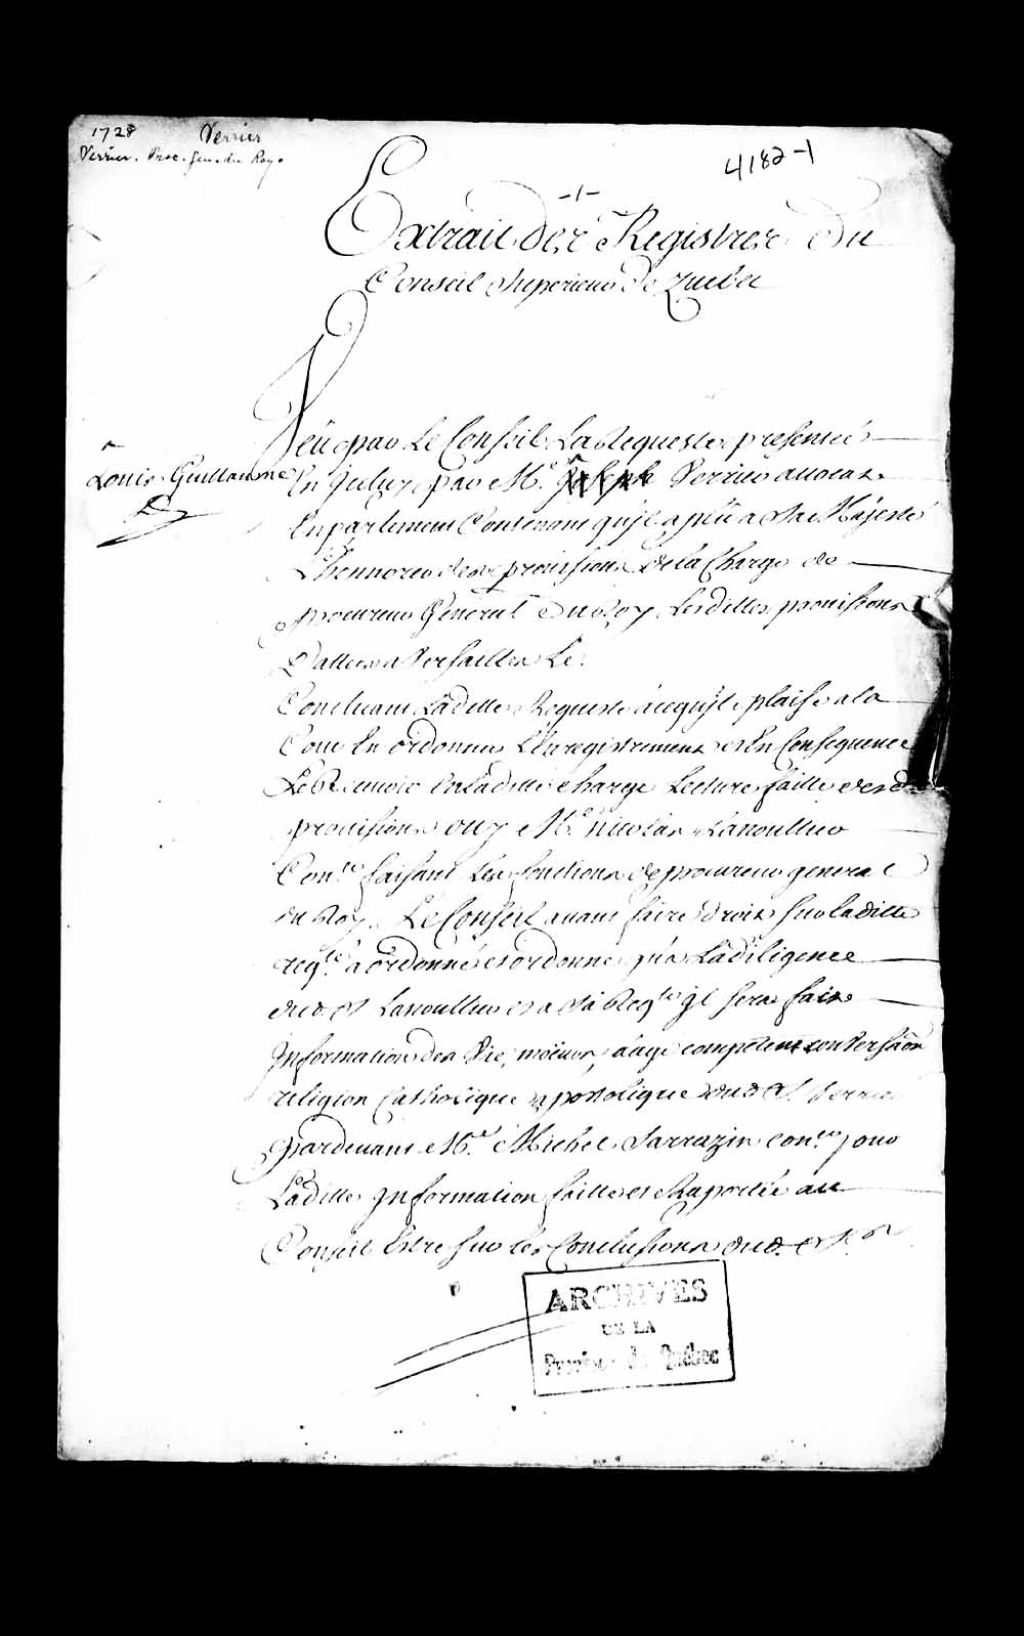 1728 Verrier
Verrier. Proc. Gen. du Roy.
4182-1
-1-
Extrait des Registres du
Conseil Superieur de Quebec
Veu par Le Conseil La Requeste presentée
Louis Guillaume
En Iceluy par Me. Joseph Verrier auocat
En parlement Contenant qu'jl a plû a Sa Majesté
L'honnorer des prouisions de la Charge de
procureur General du Roy Lesdittes prouisions
Dattées a Versailles Le.
Concluant Laditte Requeste àcequ'jl plaise a la
Cour En ordonner L'Enregistrement et En Consequence
Le Receuoir En Laditte charge Lecture faitte desd.
prouisions ouy Me. nicolas Lanoullier
Coner. faisant Les fonctions de procureur general
du Roy. Le Conseil auant faire droit sur laditte
reqte. à ordonné et ordonne qu'a La diligence
dud. Sr. Lanoullier et a Sa Reqte. jl sera fait
Information des Vie, moeurs, aage competent conversaõn
religion Catholique apostolique dud. Sr. Verrier
pardeuant Me. Michel Sarrazin coner. pour
Laditte Information faitte et Raportée au
Conseil Estre sur les Conclusions dud. Sr.
ARCHIVES
DE LA
Province de Québec